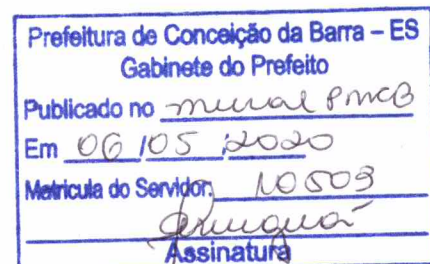 Prefeitura de Conceição da Barra – ES
Gabinete do Prefeito
Publicado no mural PMCB
Em 06/05/2020
Matricula do Servidor: 10503
Assinatura